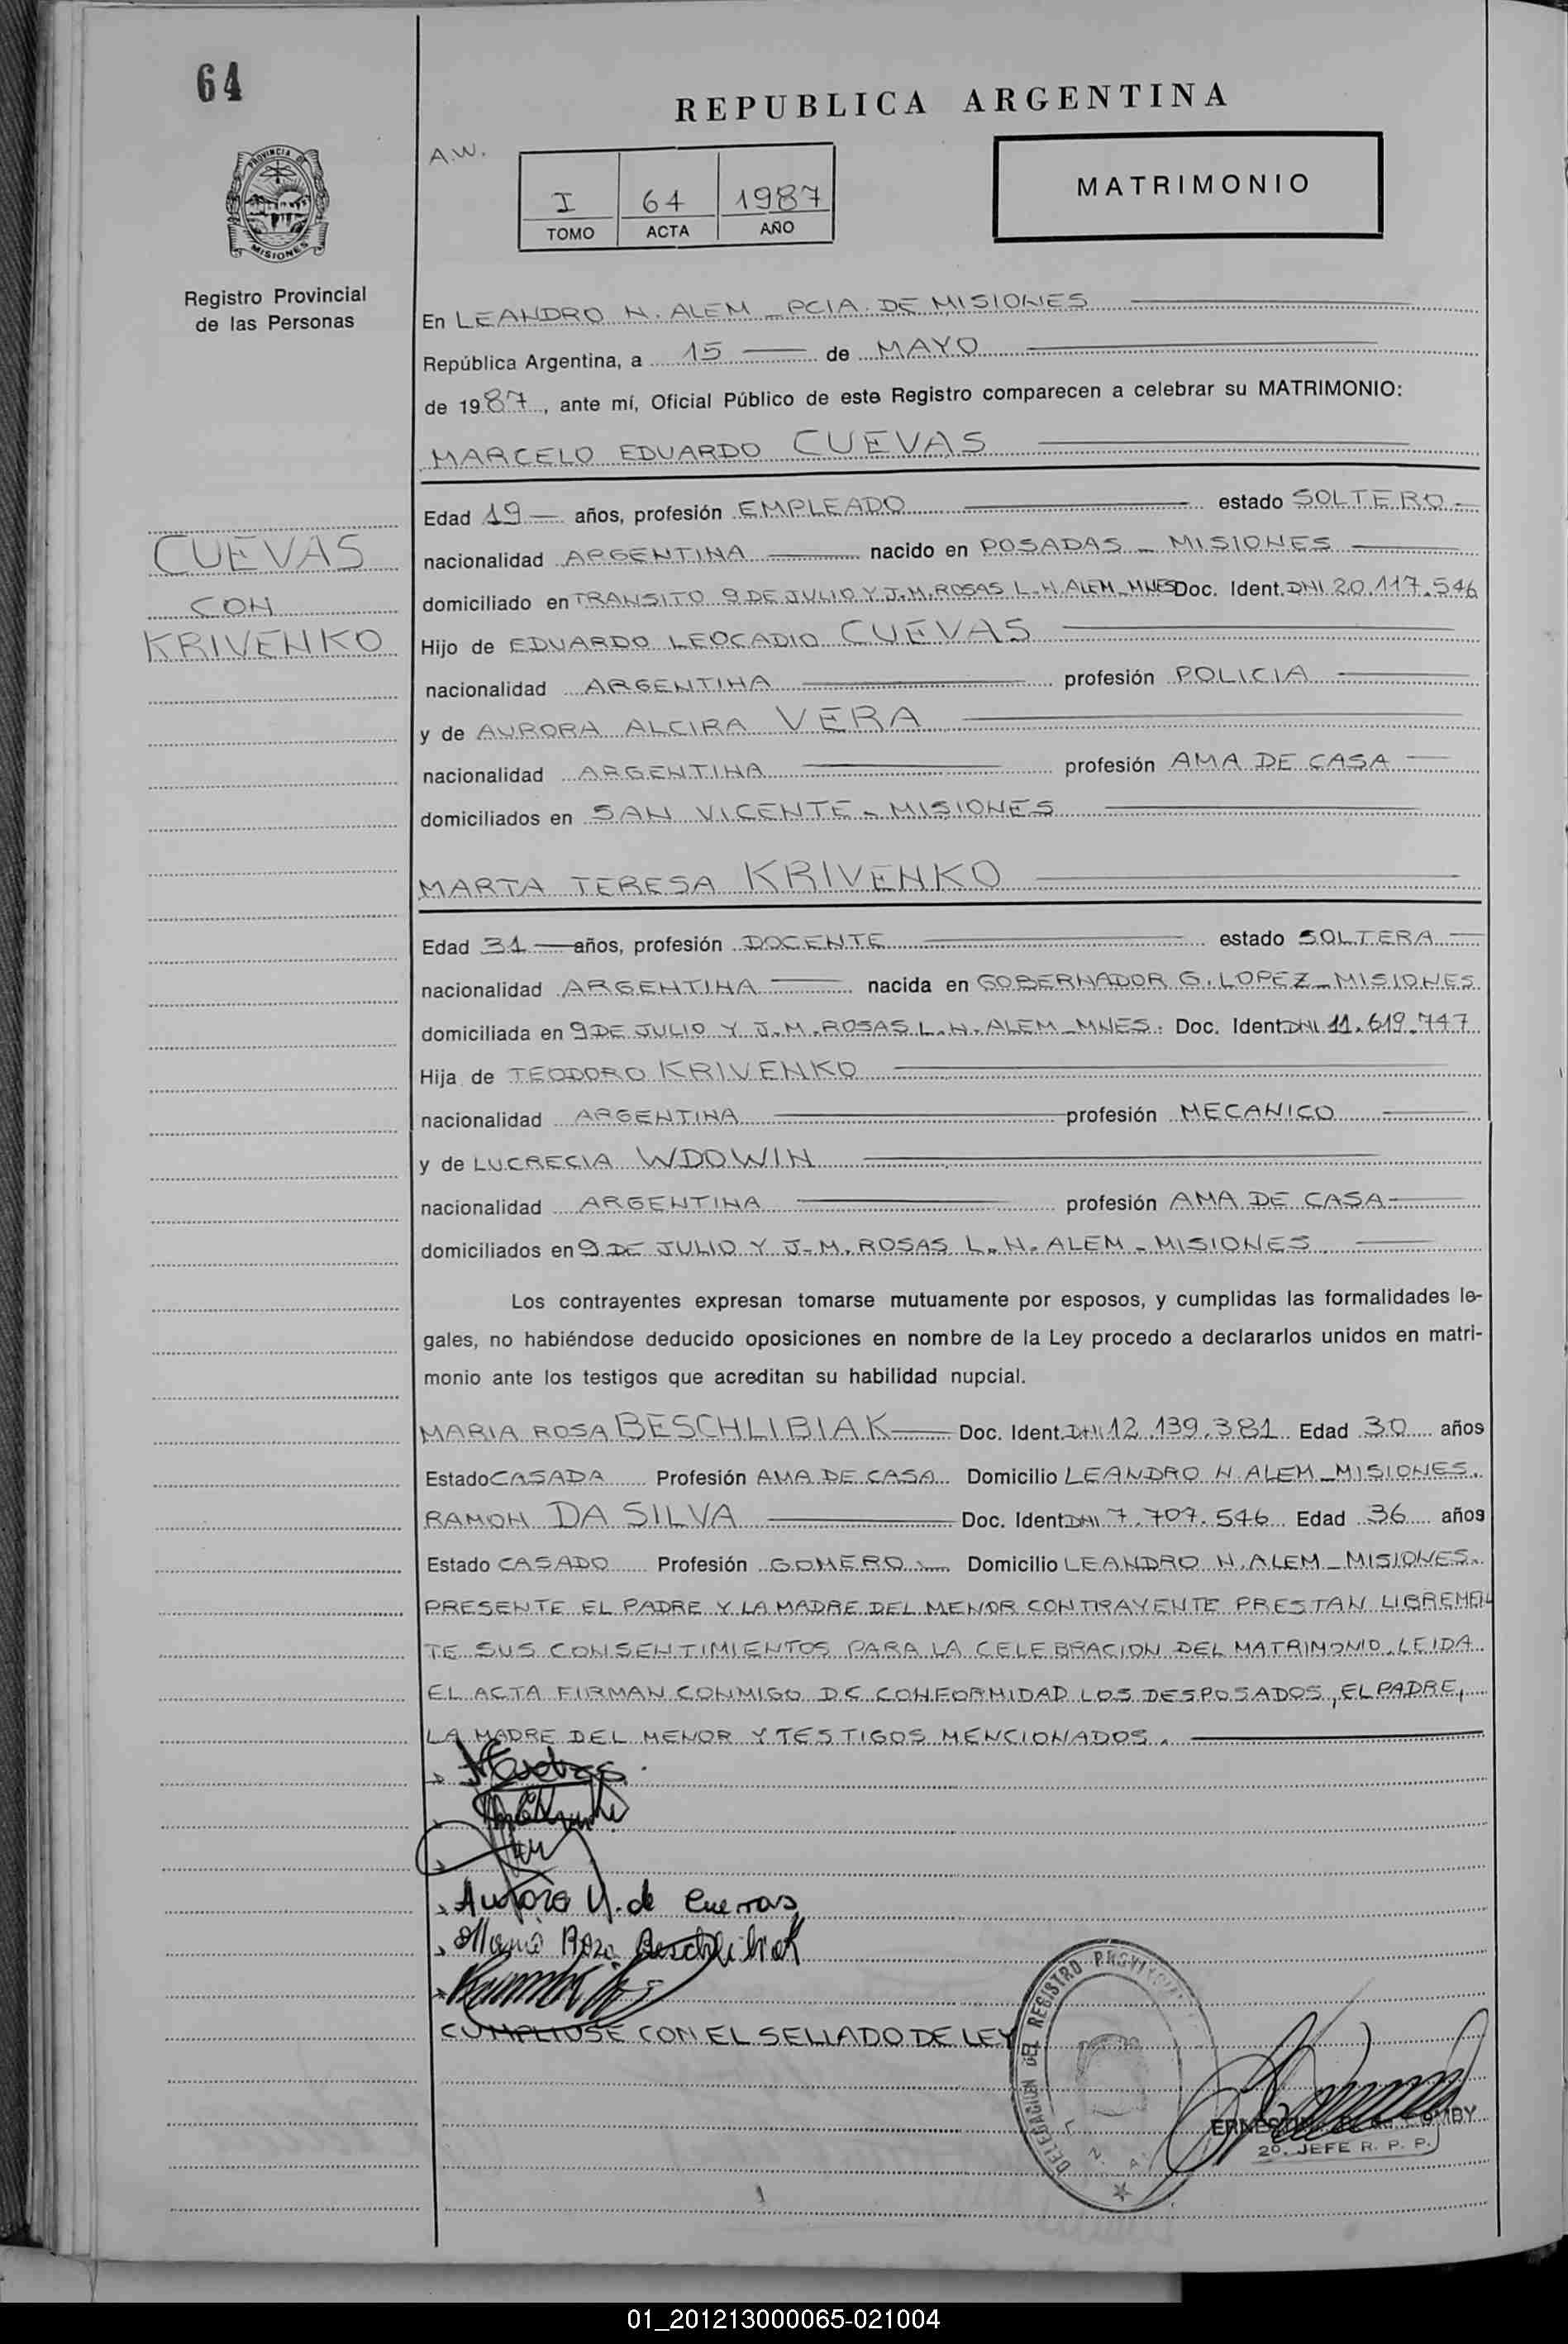 64
REPUBLICA ARGENTINA
A.W.
I 64 1987
TOMO ACTA AÑO
MATRIMONIO
PROVINCIA DE
MISIONES
Registro Provincial
de las Personas
En LEANDRO N. ALEM - PCIA. DE MISIONES
República Argentina, a 15 de MAYO
de 1987, ante mí, Oficial Público de este Registro comparecen a celebrar su MATRIMONIO:
MARCELO EDUARDO CUEVAS
Edad 19 años, profesión EMPLEADO estado SOLTERO
CUEVAS
CON
KRIVENKO
nacionalidad ARGENTINA nacido en POSADAS - MISIONES
domiciliado en TRANSITO 9 DE JULIO Y J.M. ROSAS L.N. ALEM - MNES Doc. Ident. DNI 20.117.546
Hijo de EDUARDO LEOCADIO CUEVAS
nacionalidad ARGENTINA profesión POLICIA
y de AURORA ALCIRA VERA
nacionalidad ARGENTINA profesión AMA DE CASA
domiciliados en SAN VICENTE - MISIONES
MARTA TERESA KRIVENKO
Edad 31 años, profesión DOCENTE estado SOLTERA
nacionalidad ARGENTINA nacida en GOBERNADOR G. LOPEZ - MISIONES
domiciliada en 9 DE JULIO Y J.M. ROSAS L.N. ALEM - MNES. Doc. Ident DNI 11.619.747
Hija de TEODORO KRIVENKO
nacionalidad ARGENTINA profesión MECANICO
y de LUCRECIA WDOWIN
nacionalidad ARGENTINA profesión AMA DE CASA
domiciliados en 9 DE JULIO Y J.M. ROSAS L.N. ALEM - MISIONES
Los contrayentes expresan tomarse mutuamente por esposos, y cumplidas las formalidades le-
gales, no habiéndose deducido oposiciones en nombre de la Ley procedo a declararlos unidos en matri-
monio ante los testigos que acreditan su habilidad nupcial.
MARIA ROSA BESCHLIBIAK Doc. Ident. DNI 12.139.381 Edad 30 años
Estado CASADA Profesión AMA DE CASA Domicilio LEANDRO N. ALEM - MISIONES.
RAMON DA SILVA Doc. Ident DNI 7.707.546 Edad 36 años
Estado CASADO Profesión GOMERO Domicilio LEANDRO N. ALEM - MISIONES.
PRESENTE EL PADRE Y LA MADRE DEL MENOR CONTRAYENTE PRESTAN LIBREMEN
TE SUS CONSENTIMIENTOS PARA LA CELEBRACION DEL MATRIMONIO. LEIDA
EL ACTA FIRMAN CONMIGO DE CONFORMIDAD LOS DESPOSADOS, EL PADRE,
LA MADRE DEL MENOR Y TESTIGOS MENCIONADOS.
Aurora V. de Cuevas
Maria Rosa Beschlibiak
CUMPLIOSE CON EL SELLADO DE LEY
DELEGACION DEL REGISTRO PROVINCIAL
L. N. A.
2º. JEFE R. P. P.
01_201213000065-021004